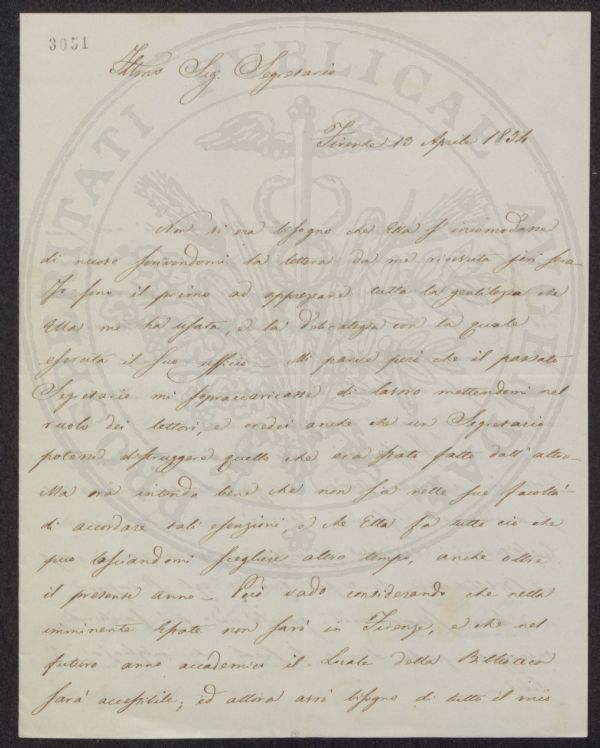 3051
Illmo Sig. Segretario
Firenze 13 Aprile 1834
Non vi era bisogno che Ella s' incomodasse
di nuovo scrivendomi la lettera da me ricevuta jeri sera
Io sono il primo ad apprezzare tutta la gentilezza che
Ella mi ha usata, e la delicatezza con la quale
esercita il suo uffizio _ Mi parve però che il passato
Segretario mi sopraccaricasse di lavoro mettendomi nel
ruolo dei lettori, e credei anche che un Segretario
potesse distruggere quello che era stato fatto dall' altro _
Ma ora intendo bene che non sia nelle sue facoltà
di accordare tali esenzioni e che Ella fa tutto ciò che
può lasciandomi scegliere altro tempo, anche oltre
il presente anno _ Però vado considerando che nella
imminente Estate non sarò in Firenze, e che nel
futuro anno accademico il Locale della Biblioteca
sarà accessibile; ed allora avrò bisogno di tutto il mio
PROSPERITATI PUBLICAE AUGENDAE